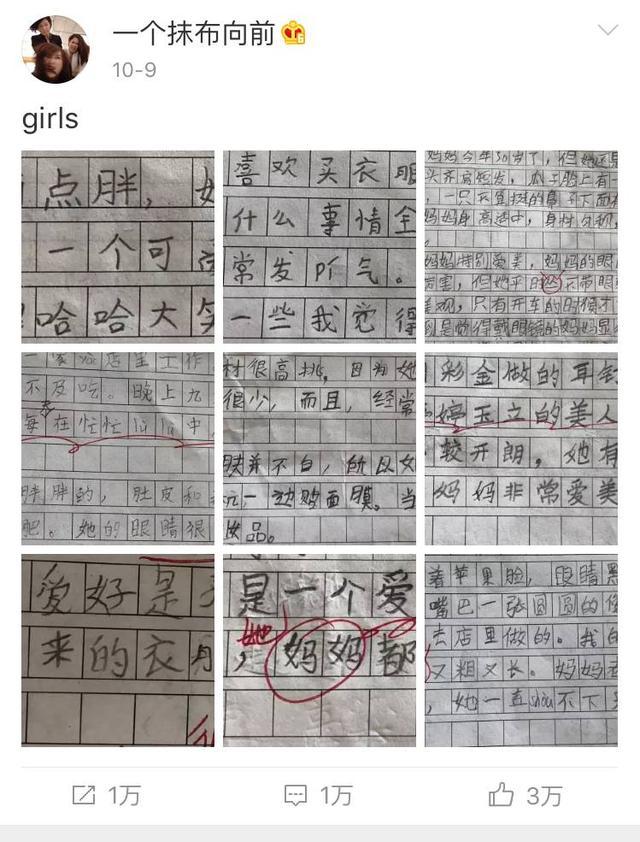 一个抹布向前
10-9
girls
点胖，
一个可
哈哈大笑
喜欢买衣服
什么事情全
常发pí气。
一些我觉得
妈妈今年30岁了，但她还是
妈妈身高适中，身材
妈妈特别爱美，妈妈的眼
，但她平时 不带眼
美观，只有开车的时候才
觉得戴眼镜的妈妈显
不及吃。晚上九
每在忙忙碌碌中，
胖胖的，肚皮和
吧。她的眼睛很
材很高挑，因为她
很少，而且，经常
肤并不白，所以女
元一边购面膜。当
妆品。
彩金做的耳钉
婷玉立的美人
较开朗，她有
妈妈非常爱美
爱好是
来的衣服
是一个爱
她
，是妈妈都
着苹果脸，眼睛黑
嘴巴一张圆圆的
去店里做的。我的
又粗又长。妈妈
，她一直shòu不下
1万
1万
3万